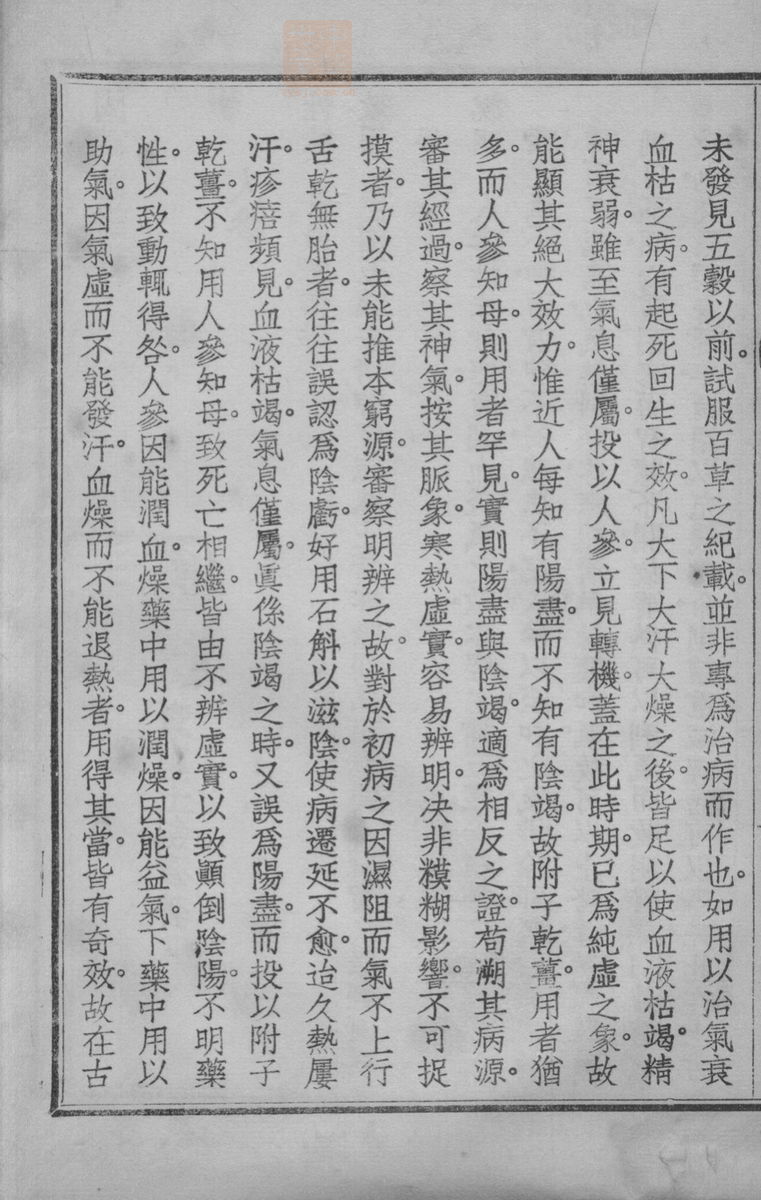 未發見五穀以前。試服百草之紀載。並非專爲治病而作也。如用以治氣衰
血枯之病。有起死回生之效。凡大下大汗大燥之後。皆足以使血液枯竭。精
神衰弱。雖至氣息僅屬。投以人參。立見轉機。蓋在此時期。已爲純虛之象。故
能顯其絕大效力。惟近人每知有陽盡。而不知有陰竭。故附子乾薑。用者猶
多。而人參知母。則用者罕見。實則陽盡與陰竭。適爲相反之證。苟溯其病源。
審其經過。察其神氣。按其脈象。寒熱虛實。容易辨明。決非糢糊影響。不可捉
摸者。乃以未能推本窮源。審察明辨之故。對於初病之因濕阻而氣不上行
舌乾無胎者。往往誤認爲陰虧。好用石斛以滋陰。使病遷延不愈。迨久熱屢
汗。疹㾦頻見。血液枯竭。氣息僅屬。眞係陰竭之時。又誤爲陽盡。而投以附子
乾薑。不知用人參知母。致死亡相繼。皆由不辨虛實。以致顚倒陰陽。不明藥
性。以致動輒得咎。人參因能潤血。燥藥中用以潤燥。因能益氣。下藥中用以
助氣。因氣虛而不能發汗。血燥而不能退熱者。用得其當。皆有奇效。故在古